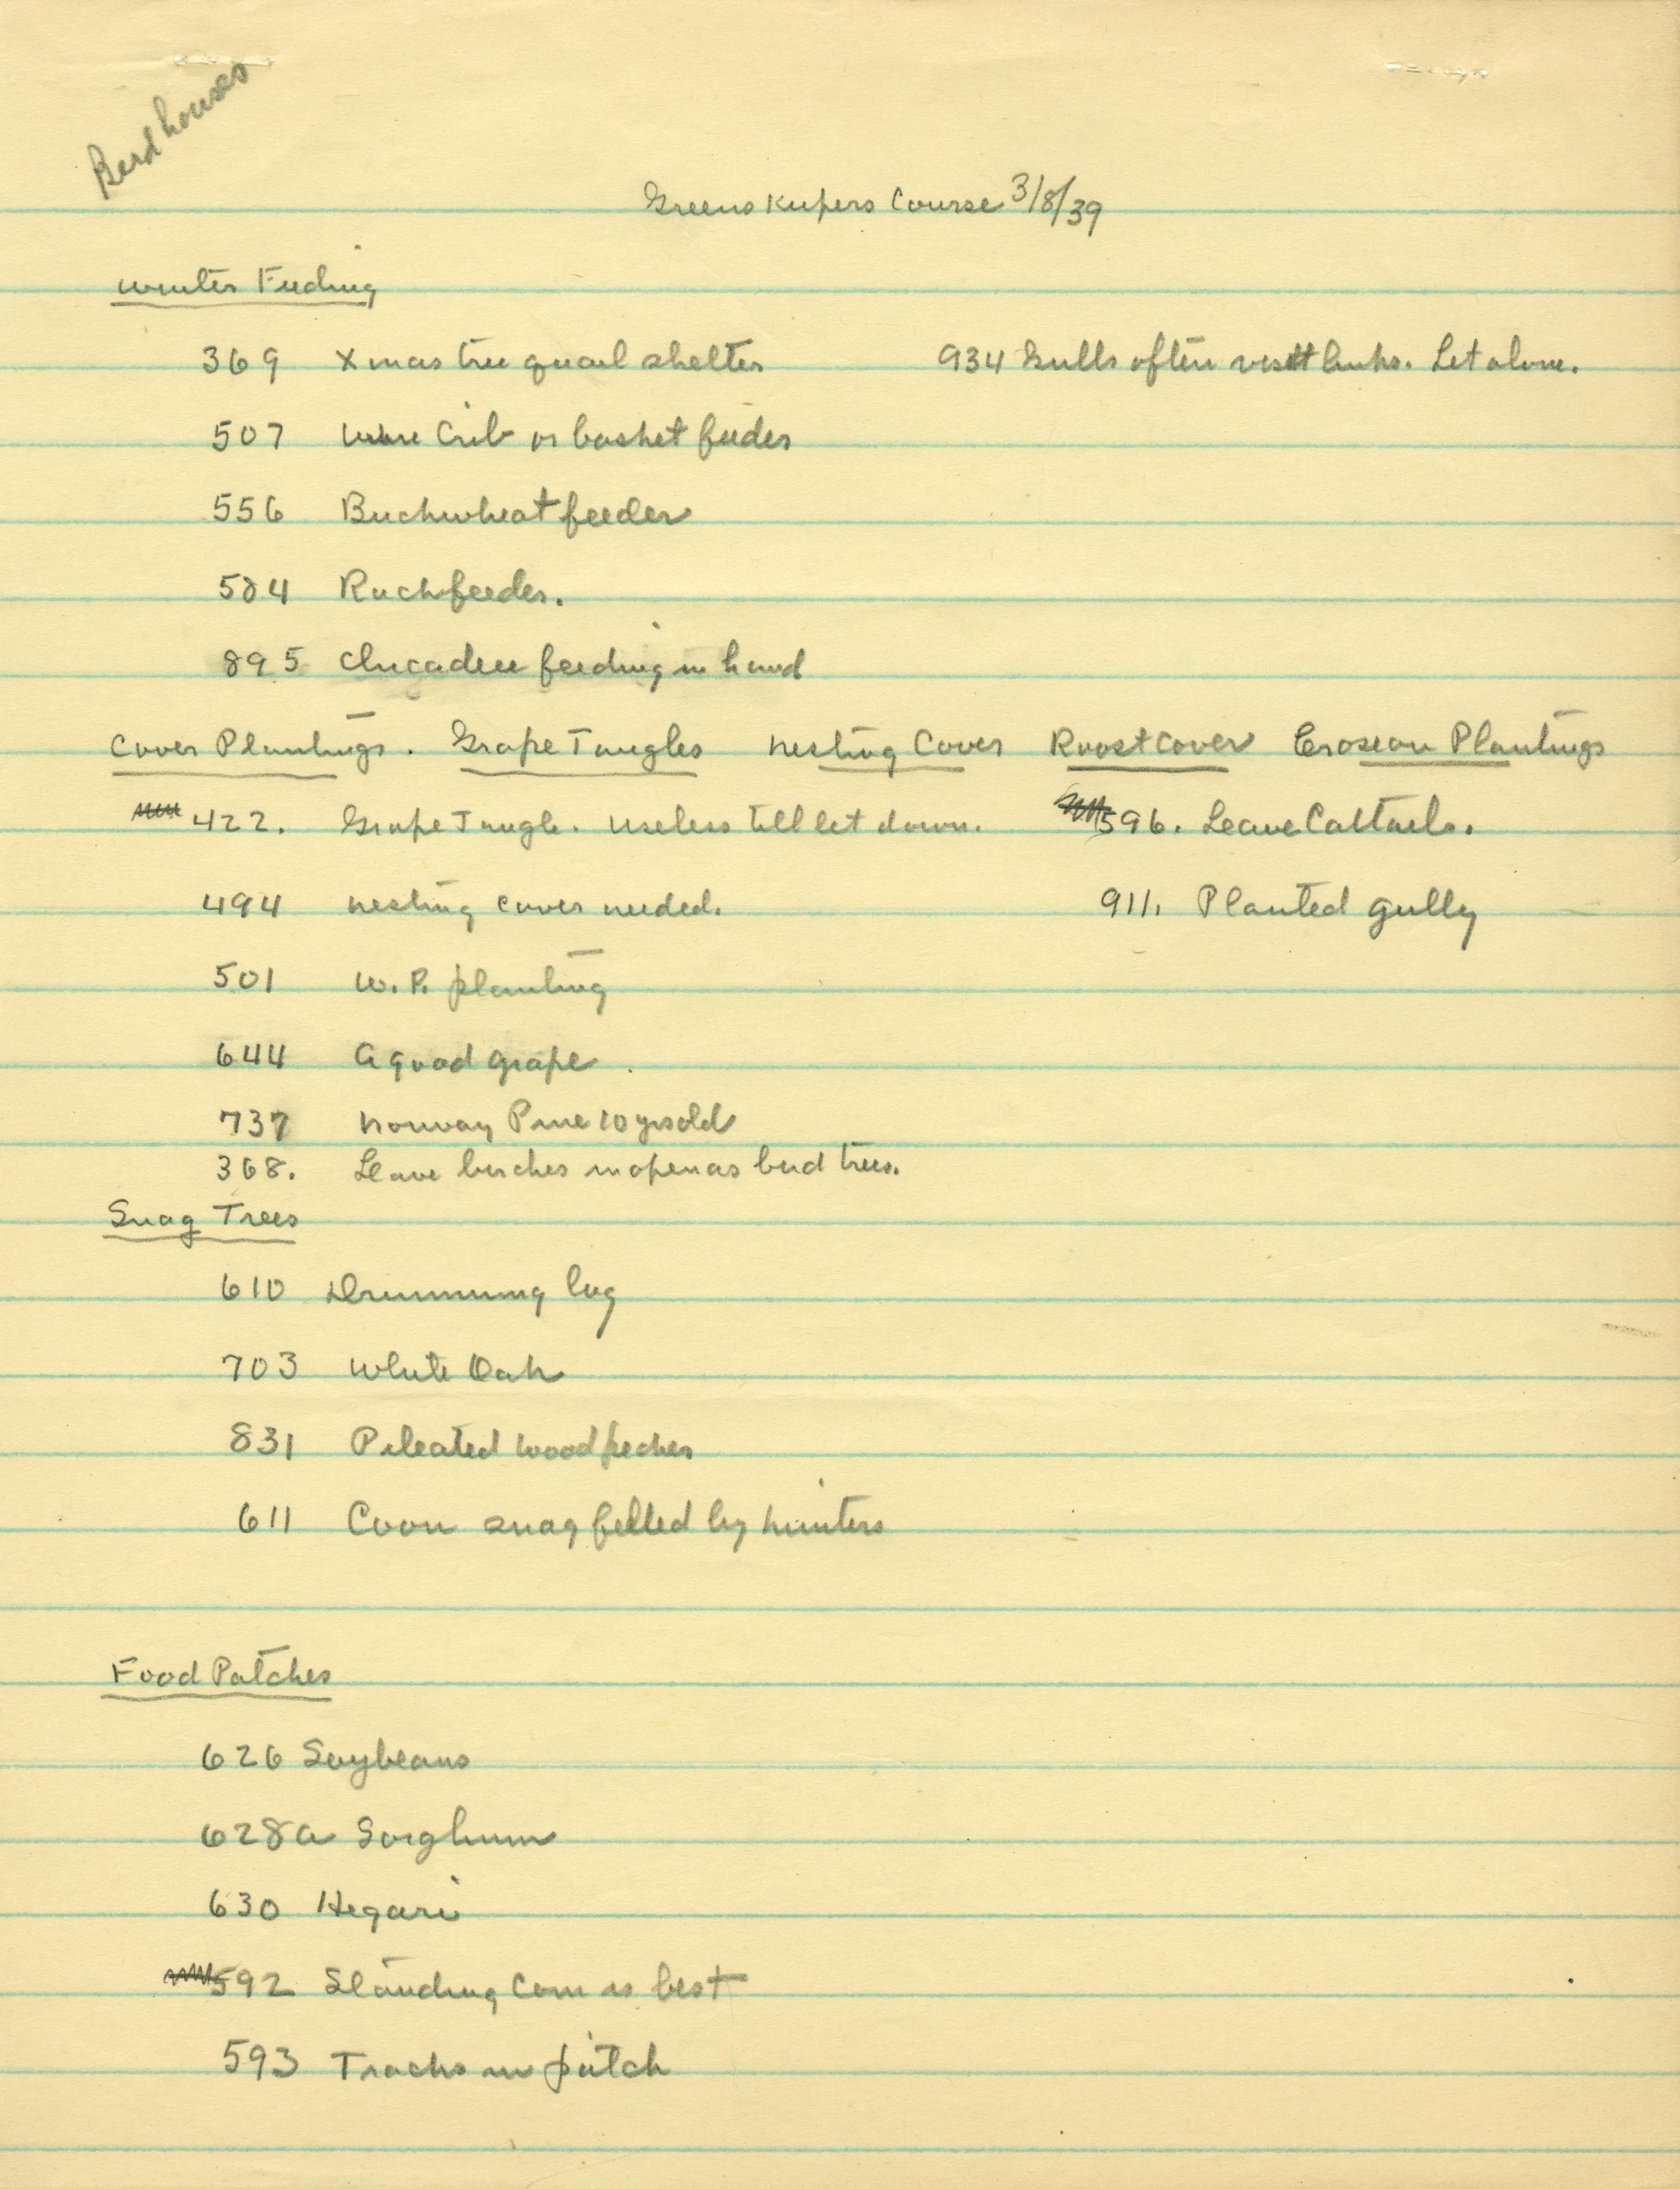 Bird houses
Greenskeepers Course 3/8/39
Winter Feeding
369 Xmas tree quail shelter 934 Gulls often visit links. Let alone.
507 Wire Crib or basket feeder
556 Buckwheat feeder
584 Rack feeder.
895 Chicadee feeding in hand
Cover Plantings. Grape Tangles Nesting Cover Roost Cover Erosion Plantings
422. Grape Tangle. Useless till let down. 596. Leave Cattails.
494 Nesting cover needed. 911. Planted gully
501 W. P. planting
644 A good grape.
737 Norway Pine 10 yrs old
368. Leave birches in open as bud trees.
Snag Trees
610 Drumming log
703 White Oak
831 Pileated Woodpecker
611 Coon snag felled by hunters
Food Patches
626 Soybeans
628a Sorghum
630 Hegari
592 Standing Corn is best
593 Tracks in patch